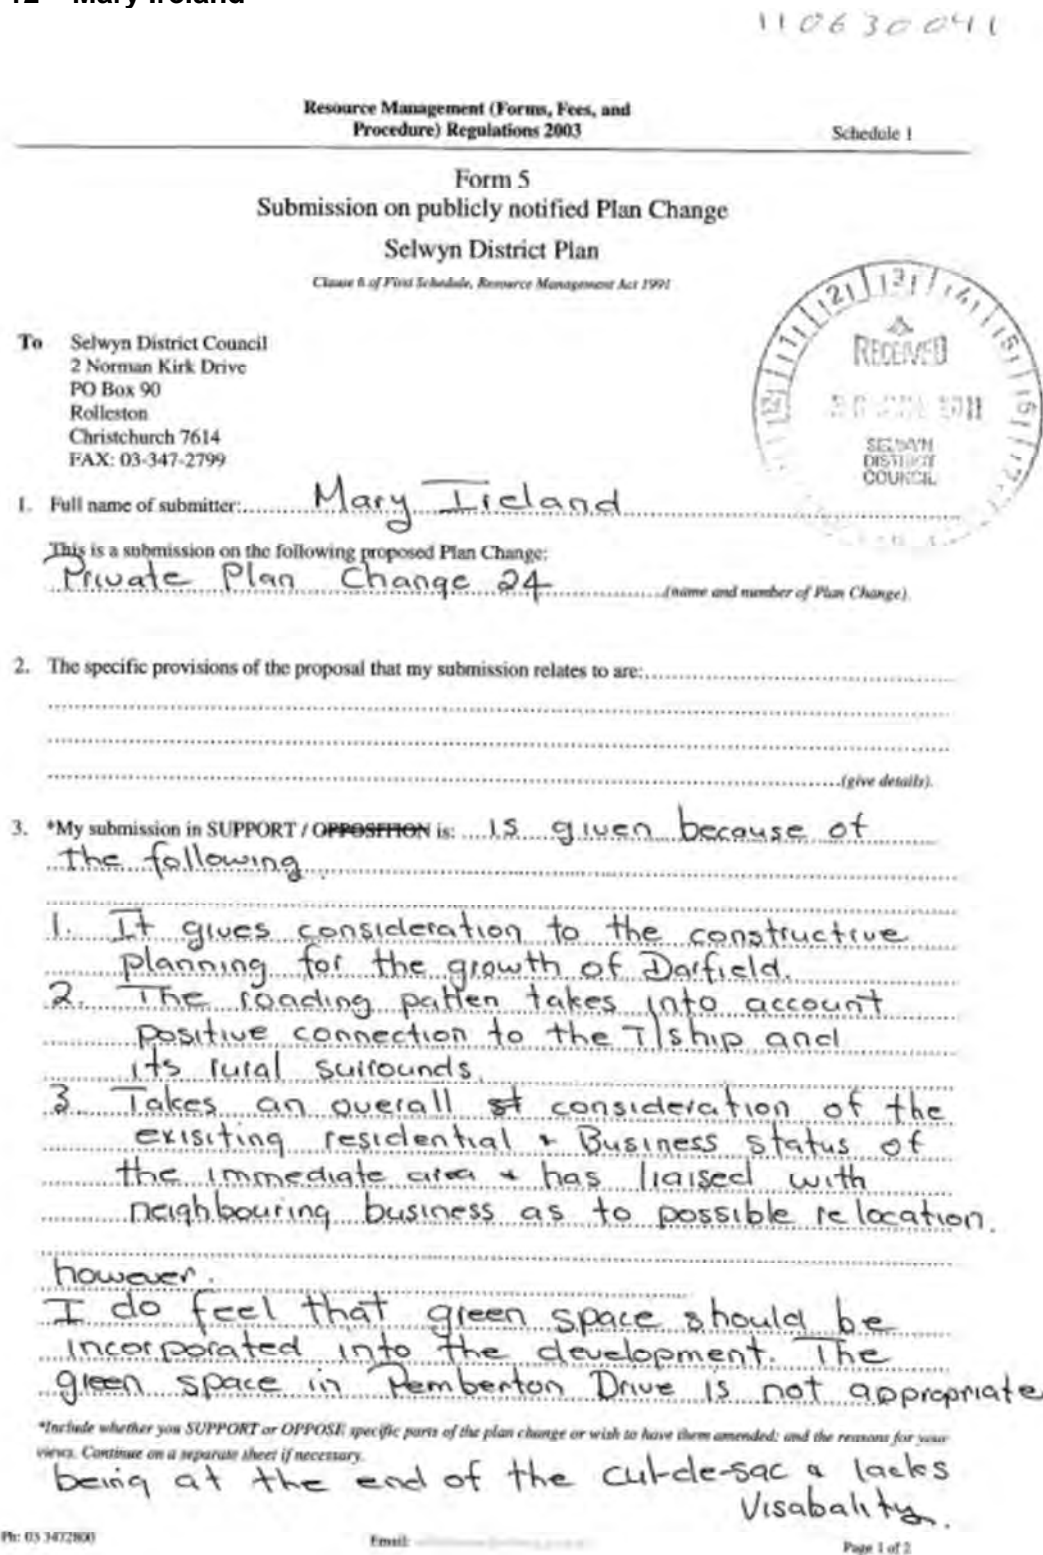 12 Mary Ireland
110630041
Resource Management (Forms, Fees, and
Procedure) Regulations 2003
Schedule 1
Form 5
Submission on publicly notified Plan Change
Selwyn District Plan
Clause 6 of First Schedule, Resource Management Act 1991
To Selwyn District Council
2 Norman Kirk Drive
PO Box 90
Rolleston
Christchurch 7614
FAX: 03-347-2799
RECEIVED
SELWYN
DISTRICT
COUNCIL
1. Full name of submitter: Mary Ireland
This is a submission on the following proposed Plan Change:
Private Plan Change 24 (name and number of Plan Change)
2. The specific provisions of the proposal that my submission relates to are:
(give details).
3. *My submission in SUPPORT / OPPOSITION is: is given because of
the following.
1. It gives consideration to the constructive
planning for the growth of Darfield.
2. The roading patten takes into account
positive connection to the T/ship and
its rural surrounds.
3 Takes an overall st consideration of the
exisiting residential + Business status of
the immediate area + has liaised with
neighbouring business as to possible relocation.
however.
I do feel that green space should be
incorporated into the development. The
green space in Pemberton Drive is not appropriate
*Include whether you SUPPORT or OPPOSE specific parts of the plan change or wish to have them amended; and the reasons for your
views. Continue on a separate sheet if necessary.
being at the end of the cul-de-sac & lacks
Visabality.
Ph: 03 3472800
Email:
Page 1 of 2